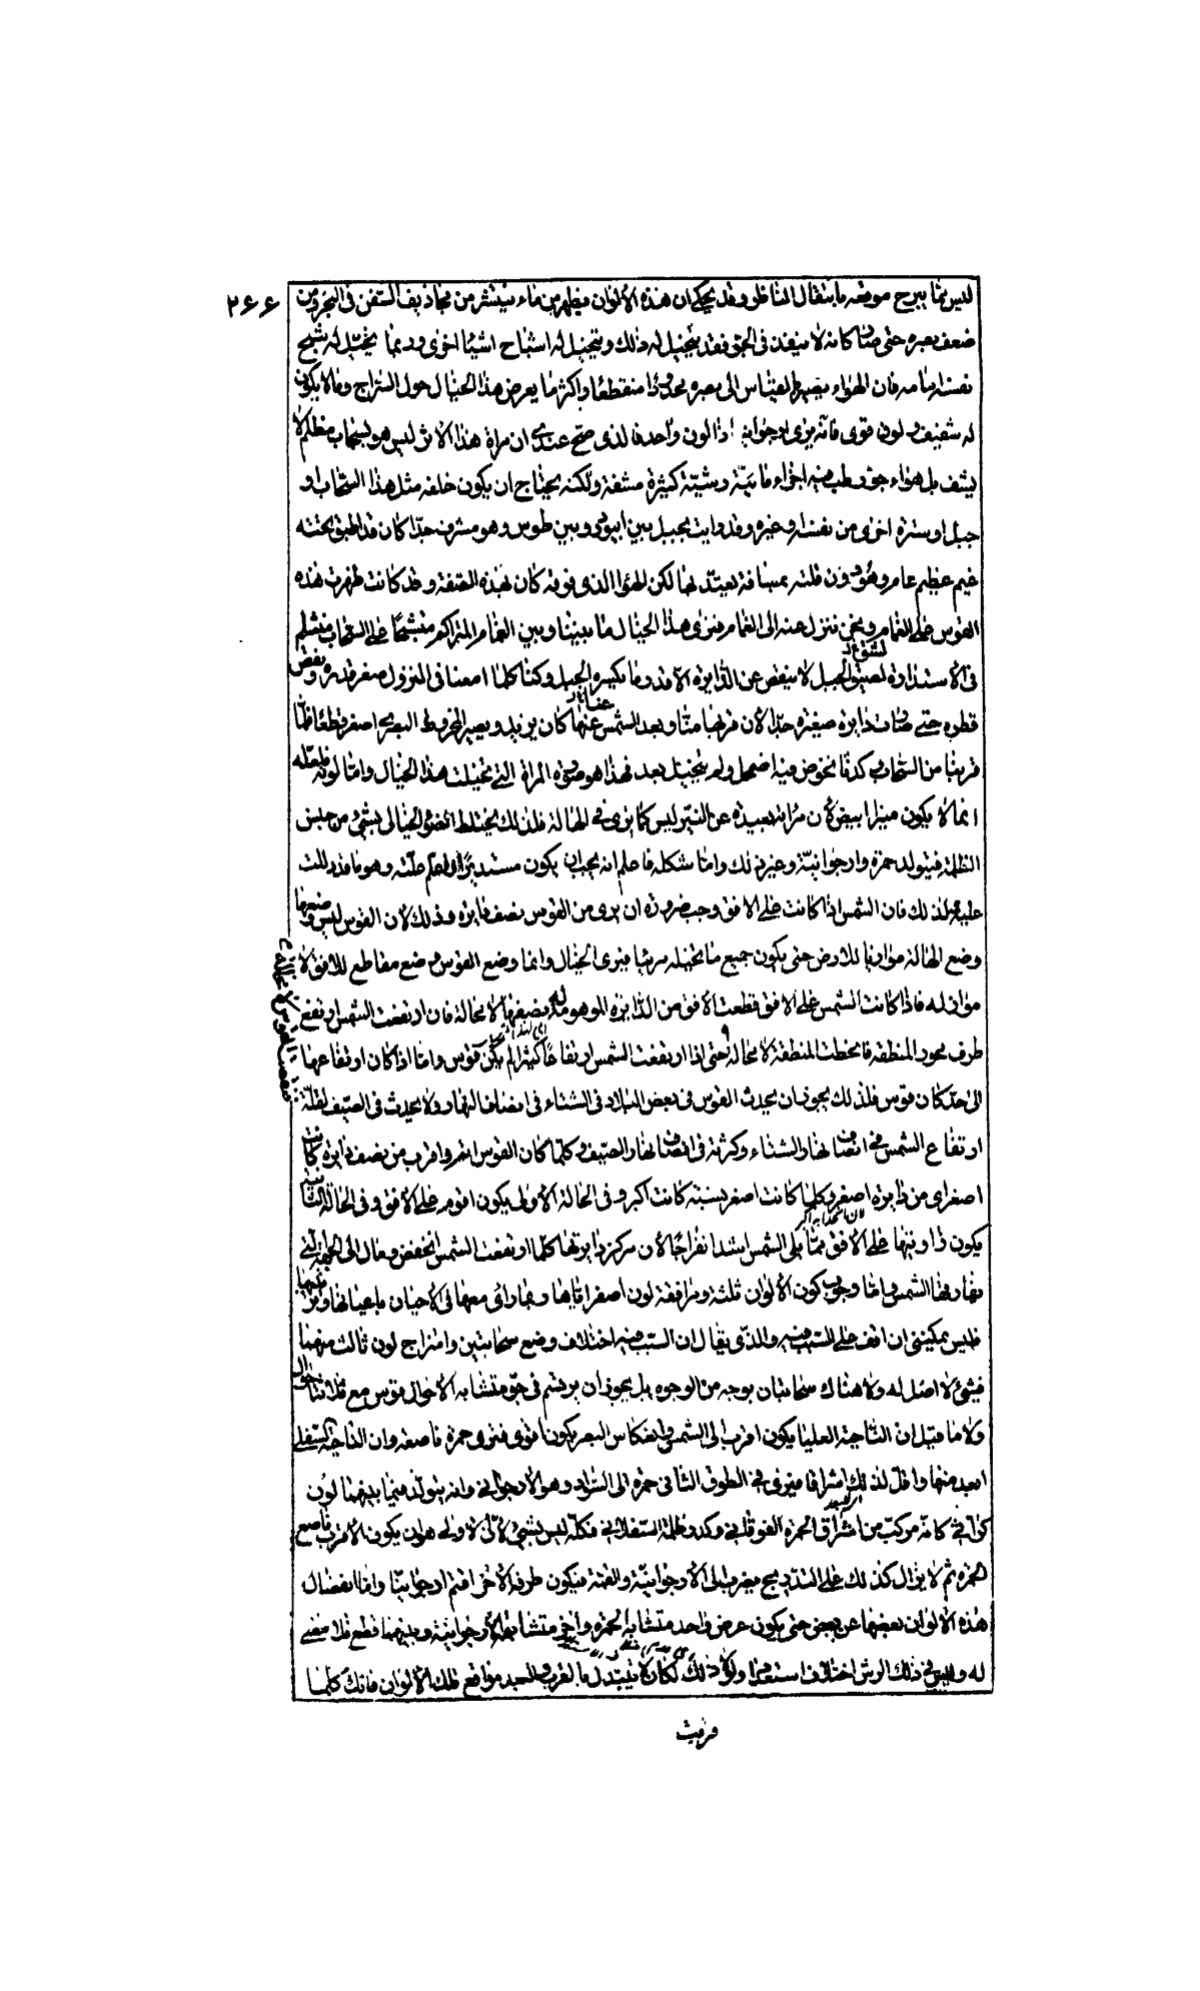 ۲۶۶
ليس مما يبرح موضعه بانتقال الناظر وقد يحكى ان هذه الألوان يظهر من ماء ينتشر من مجاذيف السفن فى البحر ومن
ضعف بصره حتى صار كانه لا ينفذ فى الجو فقد يتخيل له ذلك ويتخيل له اشباح اشياء اخرى وربما يخيّل له شبح
نفسه امامه فان الهواء يصير بالقياس الى بصره محدودا منقطعا واكثر ما يعرض هذا الخيال حول السراج وما لا يكون
له شفيف ولون قوى فانه يرى لوجوابه اذا لون واحد فالذى صح عندى ان مرآة هذا الاثر ليس هو بسحاب مظلم لا
يشف بل هواء جو رطب فيه اجزاء مائية رشية كثيرة مشفة ولكنه يحتاج ان يكون خلفه مثل هذا السحاب او
جبل او سترة اخرى من نفسه او غيره وقد رايت بجبل بين ابيورد وبين طوس وهو مشرف جدا كان قد اطبق تحته
غيم عظيم عام وهو دون قلته بمسافة يعتد بها لكن الهواء الذى فوقه كان بهذه الصفة وقد كانت ظهرت هذه
القوس على الغمام ونحن ننزل عنه الى الغمام فنرى هذا الخيال ما بيننا وبين الغمام المتراكم متشبحا على السحاب منثلم
فى الاستدارة لضيق الجبل لا ينقص عن الدايرة الا قدر ما يكسره الجبل وكنا كلما امعنا فى النزول صغر قدره ونقص
قطره حتى صارت دايرة صغيرة جدا لان قربنا منا وبعد الشمس عنها كان يزيد ويصير المخروط البصرى اصغر قطعا فلما
قربنا من السحاب وكدنا نخوض فيه اضمحل ولم يتخيل بعد فهذا هو صورة المرآة التى تخيلت هذا الخيال واما لونه فلعله
انما لا يكون منيرا ابيض لان مرآته بعيدة عن النير ليس كما يرى فى الهالة فلذلك يختلط الضوء الخيالى بشئ من جنس
الظلمة فيتولد حمرة وارجوانية وغير ذلك واما شكله فاعلم انه يجب ان يكون مستديرا ولعلم علته وهو ما قد دللت
عليه ولذلك فان الشمس اذا كانت على الافق وجب ضرورة ان يرى من القوس نصف دايرة وذلك لان القوس ليس وضعها
وضع الهالة موازيا للارض حتى يكون جميع ما يخيله مرئيا فيرى الخيال وانما وضع القوس وضع مقاطع للافق لا
مواز له فاذا كانت الشمس على الافق قطعت الافق من الدايرة الموهومة نصفها لا محالة فان ارتفعت الشمس ارتفع
طرف محور المنطقة فانحطت المنطقة لا محالة حتى اذا ارتفعت الشمس ارتفاعا كثيرا لم يكن قوس واما اذا كان ارتفاعها
الى حد كان قوس فلذلك يجوز ان يحدث القوس فى بعض البلاد فى الشتاء فى انصاف النهار ولا يحدث فى الصيف لقلة
ارتفاع الشمس فى انصاف نهار الشتاء وكثرته فى انصاف نهار الصيف وكلما كان القوس اتم واقرب من نصف دايرة كانت
اصغر اى من دايرة اصغر وكلما كانت اصغر نسبة كانت اكبر وفى الحالة الاولى يكون اقوم على الافق وفى الحالة الثانية
يكون زاويتها على الافق مما يلى الشمس اشد انفراجا لان مركز دايرتها كلما ارتفعت الشمس انخفض ومال الى الجهة التى
تفارقها الشمس واما وجوب كون الألوان ثلثة ومرافقة لون اصفر اياها ربما راى معها فى الاحيان باعيانها ومن
فليس يمكننى ان اقف على السبب فيه والذى يقال ان السبب فيه اختلاف وضع سحابتين وامتزاج لون ثالث منهما
فشئ لا اصل له ولا هناك سحابتان بوجه من الوجوه بل يجوز ان يرتسم فى جو متشابه الاحوال قوس مع
ولا ما قيل ان الناحية العليا يكون اقرب الى الشمس وانعكاس البصر يكون اقوى فيرى حمرة ناصعة وان الناحية السفلى
ابعد منها واقل لذلك اشراقا فيرى فى الطوق الثانى حمرة الى السواد وهو الارجوانى وانه يتولد فيما بينهما لون
كراثى كانه مركب من اشراق الحمرة الفوقانى وكدر ظلمة السفلانى فكله ليس بشئ لان الاولى هو ان يكون الاقرب ناصع
الحمرة ثم لا يزال كذلك على التدريج يضرب الى الارجوانية والقتمة فيكون طرفه الاخر اقتم ارجوانيا واما انفصال
هذه الألوان بعضها عن بعض حتى يكون عرض واحد متشابه الحمرة واخر متشابه الارجوانية وبينهما قطع فلا معنى
له وليس فى ذلك الرش اختلاف استعداد ولو كان ذلك لكان لا يتبدل بالقرب والبعد مواقع تلك الألوان فانك كلما
قربت